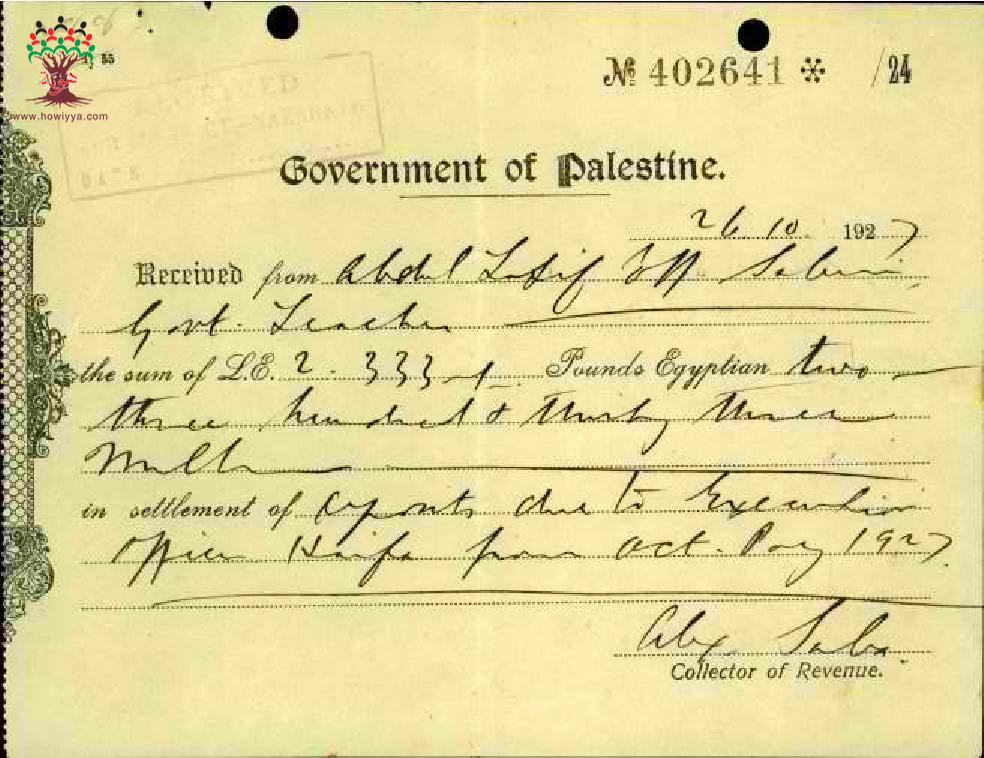 55
www.howiyya.com
RECEIVED
№ 402641 * /24
Government of Palestine.
26.10. 1927
Received from Abdul Latif Eff. Sabui
Govt. Teacher
the sum of L.E. 2. 333 Pounds Egyptian two
three hundred & thirty three
Mills
in settlement of deposits due to Execution
Officer Haifa from Oct. Pay 1927.
Alex Saba.
Collector of Revenue.